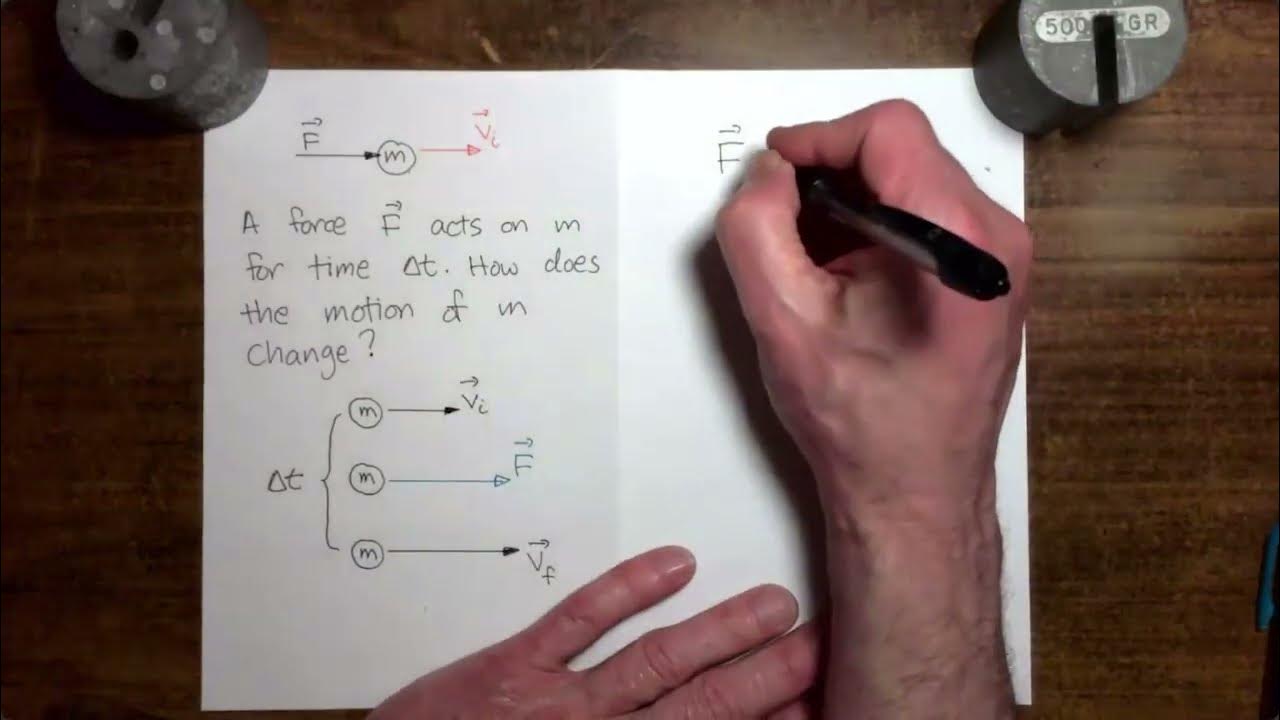 500 GR
F⃗ m v⃗ᵢ
A force F⃗ acts on m
for time Δt. How does
the motion of m
change?
m v⃗ᵢ
Δt m F⃗
m v⃗_f
F⃗